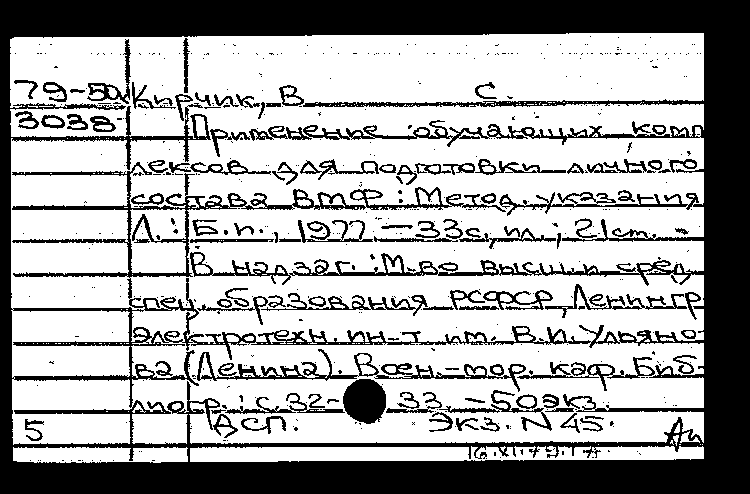 79-50 Кирчик, В С.
3038 Применение обучающих комп
лексов для подготовки личного
состава ВМФ: Метод. указания
Л.: Б.и., 1977. — 33с, ил.; 21см. -
В надзаг.: М-во высш. и сред.
спец. образования РСФСР, Ленингр
электротехн. ин-т им. В.И. Ульяно-
ва (Ленина). Воен.-мор. каф. Биб-
лиогр.: с. 32-33. — 50экз.
5 ДСП. Экз. N 45.